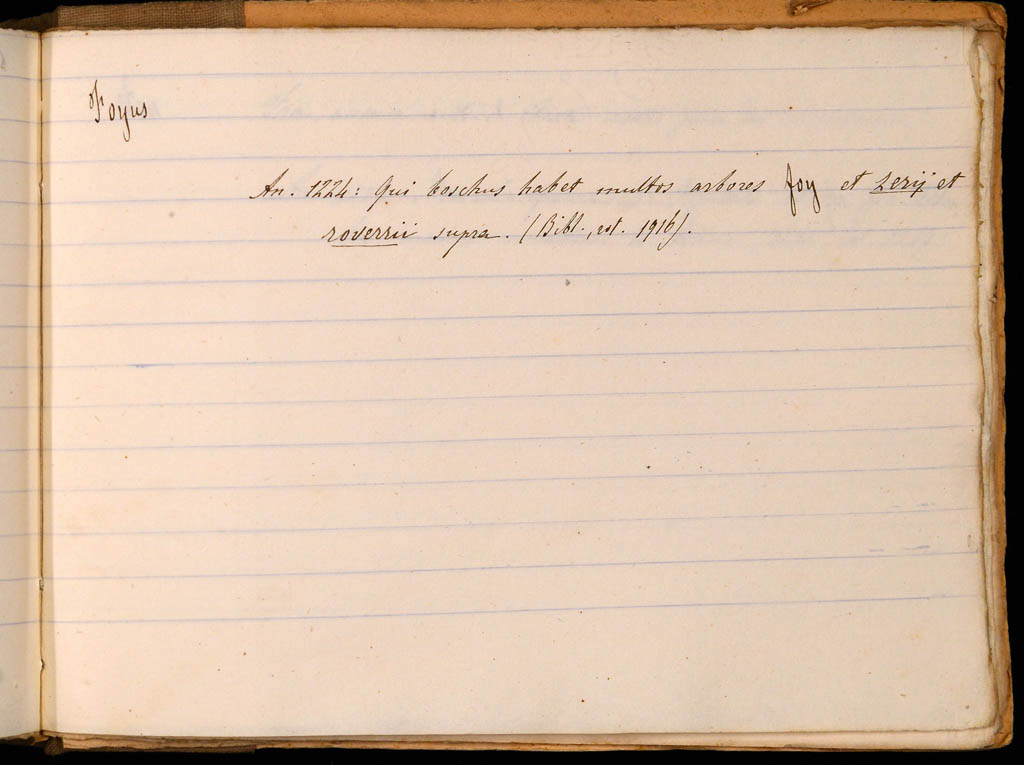 Foyus
An. 1224: Qui boschus habet multos arbores foy et zerij et
roverii supra. (Bibl., rot. 1916).